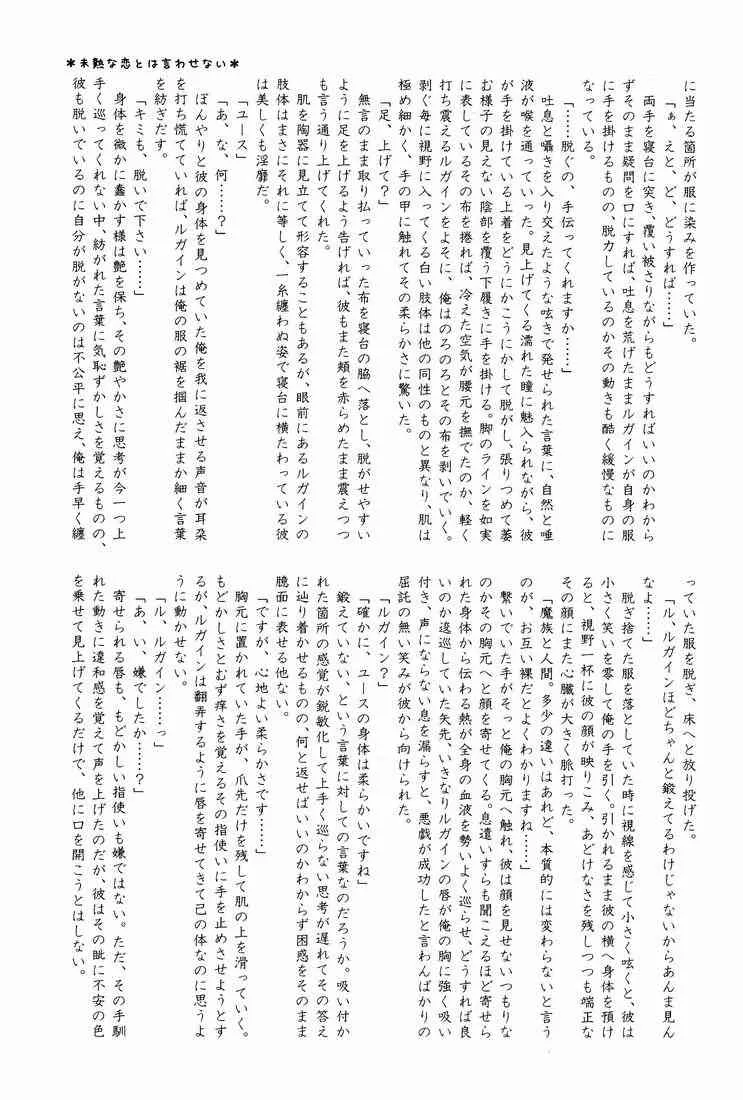 *未熟な恋とは言わせない*
に当たる箇所が服に染みを作っていた。
「ぁ、えと、ど、どうすれば……」
両手を寝台に突き、覆い被さりながらもどうすればいいのかわから
ずそのまま疑問を口にすれば、吐息を荒げたままルガインが自身の服
に手を掛けるものの、脱力しているのかその動きも酷く緩慢なものに
なっている。
「……脱ぐの、手伝ってくれますか……」
吐息と囁きを入り交えたような呟きで発せられた言葉に、自然と唾
液が喉を通っていった。見上げてくる濡れた瞳に魅入られながら、彼
が手を掛けている上着をどうにかこうにかして脱がし、張りつめて萎
む様子の見えない陰部を覆う下履きに手を掛ける。脚のラインを如実
に表しているその布を捲れば、冷えた空気が腰元を撫でたのか、軽く
打ち震えるルガインをよそに、俺はのろのろとその布を剥いでいく。
剥ぐ毎に視野に入ってくる白い肢体は他の同性のものと異なり、肌は
極め細かく、手の甲に触れてその柔らかさに驚いた。
「足、上げて？」
無言のまま取り払っていった布を寝台の脇へ落とし、脱がせやすい
ように足を上げるよう告げれば、彼もまた頬を赤らめたまま震えつつ
も言う通り上げてくれた。
肌を陶器に見立てて形容することもあるが、眼前にあるルガインの
肢体はまさにそれに等しく、一糸纏わぬ姿で寝台に横たわっている彼
は美しくも淫靡だ。
「ユース」
「あ、な、何……？」
ぼんやりと彼の身体を見つめていた俺を我に返させる声音が耳朶
を打ち慌てていれば、ルガインは俺の服の裾を掴んだままか細く言葉
を紡ぎだす。
「キミも、脱いで下さい……」
身体を微かに蠢かす様は艶を保ち、その艶やかさに思考が今一つ上
手く巡ってくれない中、紡がれた言葉に気恥ずかしさを覚えるものの、
彼も脱いでいるのに自分が脱がないのは不公平に思え、俺は手早く纏
っていた服を脱ぎ、床へと放り投げた。
「ル、ルガインほどちゃんと鍛えてるわけじゃないからあんま見ん
なよ……」
脱ぎ捨てた服を落としていた時に視線を感じて小さく呟くと、彼は
小さく笑いを零して俺の手を引く。引かれるまま彼の横へ身体を預け
ると、視野一杯に彼の顔が映りこみ、あどけなさを残しつつも端正な
その顔にまた心臓が大きく脈打った。
「魔族と人間。多少の違いはあれど、本質的には変わらないと言う
のが、お互い裸だとよくわかりますね……」
繋いでいた手がそっと俺の胸元へ触れ、彼は顔を見せないつもりな
のかその胸元へと顔を寄せてくる。息遣いすらも聞こえるほど寄せら
れた身体から伝わる熱が全身の血液を勢いよく巡らせ、どうすれば良
いのか逡巡していた矢先、いきなりルガインの唇が俺の胸に強く吸い
付き、声にならない息を漏らすと、悪戯が成功したと言わんばかりの
屈託の無い笑みが彼から向けられた。
「ルガイン？」
「確かに、ユースの身体は柔らかいですね」
鍛えていない、という言葉に対しての言葉なのだろうか。吸い付か
れた箇所の感覚が鋭敏化して上手く巡らない思考が遅れてその答え
に辿り着かせるものの、何と返せばいいのかわからず困惑をそのまま
臆面に表せる他ない。
「ですが、心地よい柔らかさです……」
胸元に置かれていた手が、爪先だけを残して肌の上を滑っていく。
もどかしさとむず痒さを覚えるその指使いに手を止めさせようとす
るが、ルガインは翻弄するように唇を寄せてきて己の体なのに思うよ
うに動かせない。
「ル、ルガイン……っ」
「あ、い、嫌でしたか……？」
寄せられる唇も、もどかしい指使いも嫌ではない。ただ、その手馴
れた動きに違和感を覚えて声を上げたのだが、彼はその眦に不安の色
を乗せて見上げてくるだけで、他に口を開こうとはしない。